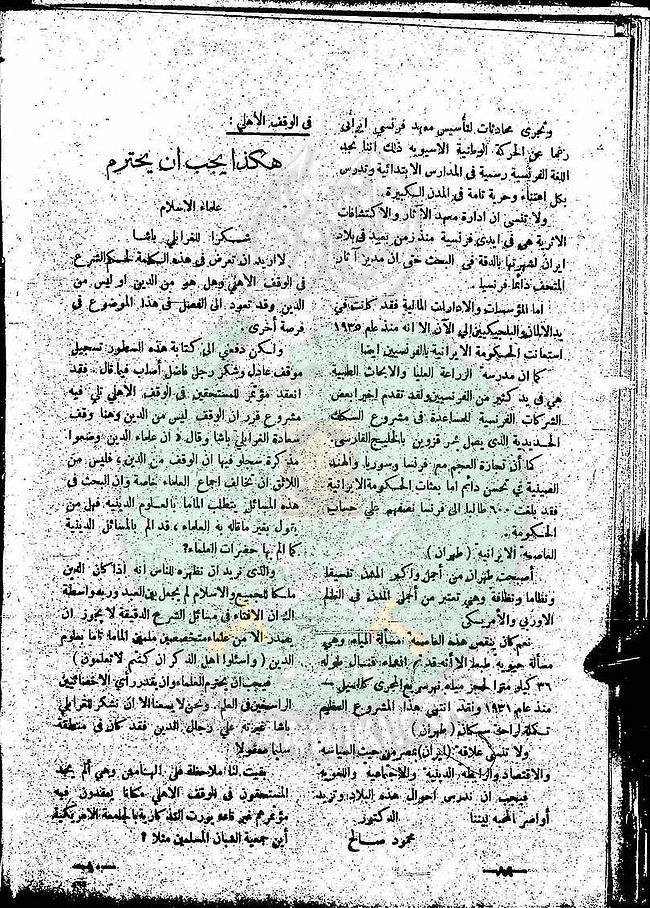 وتجرى محادثات لتأسيس معهد فرنسي ايرانى
رغما عن الحركة الوطنية الاسيويه ذلك اننا نجد
اللغة الفرنسية رسمية فى المدارس الابتدائية وتدرس
بكل اعتناء وحرية تامة فى المدن الكبيرة.
ولا ننسى ان ادارة معهد الآثار والاكتشافات
الاثرية هى فى ايدى فرنسية منذ زمن بعيد فى بلاد
ايران لشهرتها بالدقة فى البحث حتى ان مدير آثار
المتحف دائما فرنسيا.
اما المؤسسات والادارات المالية فقد كانت فى
يد الالمان والبلجيكيين إلى الآن الا انه منذ عام ١٩٣٥
استعانت الحكومة الايرانية بالفرنسيين ايضا
كما ان مدرسة الزراعة العليا والابحاث الطبية
هى فى يد كثير من الفرنسيين ولقد تقدم اخيرا بعض
الشركات الفرنسية للمساعدة فى مشروع السكك
الحديدية الذى يصل بحر قزوين بالخليج الفارسى.
كما أن تجارة العجم مع فرنسا وسوريا والهند
الصينية فى تحسن دائم اما بعثات الحكومة الايرانية
فقد بلغت ٦٠٠ طالبا الى فرنسا نصفهم على حساب
الحكومة.
العاصمة الايرانية (طهران)
أصبحت طهران من أجمل واكبر المدن تنسيقا
ونظاما ونظافة وهى تعتبر من أجمل المدن فى العالم
الاوربى والأمريكى
نعم كان ينقص هذه العاصمة مسألة المياه وهى
مسألة حيويه طبعا الا أنه قد تم انشاء قنال طوله
٣٦ كيلو مترا لحجز مياه نهر سريع المجرى
منذ عام ١٩٣١ ولقد انتهى هذا المشروع العظيم
تكملة لراحة سكان (طهران)
ولا ننسى علاقة (ايران) بمصر من حيث السياسة
والاقتصاد والرابطة الدينية والاجتماعية واللغوية
فيجب ان ندرس احوال هذه البلاد ونزيد
أواصر المحبة بيننا الدكتور
محمود صالح
— ٨٩ —
فى الوقف الأهلى :
هكذا يجب ان يحترم
علماء الاسلام
شكرا للغرابلى باشا
لا اريد ان نعرض فى هذه الكلمة لحكم الشرع
فى الوقف الأهلى وهل هو من الدين او ليس من
الدين وقد نعود الى الفصل فى هذا الموضوع فى
فرصة أخرى.
ولكن دفعنى الى كتابة هذه السطور تسجيل
موقف عادل وشكر رجل فاضل أصاب فيما قال. فقد
انعقد مؤتمر للمستحقين فى الوقف الأهلى تلى فيه
مشروع قرر ان الوقف ليس من الدين وهنا وقف
سعادة الغرابلى باشا وقال « ان علماء الدين وضعوا
مذكرة سجلوا فيها ان الوقف من الدين، فليس من
اللائق ان نخالف اجماع العلماء خاصة وان البحث فى
هذه المسائل يتطلب الماما بالعلوم الدينية فهل من
يقول بغير ماقاله به العلماء، قد الم بالمسائل الدينية
كما الم بها حضرات العلماء؟
والذى نريد ان نظهره للناس انه اذا كان الدين
ملكا للجميع والاسلام لم يجعل بين العبد وربه واسطة
الا ان الافتاء فى مسائل الشرع الدقيقة لا يجوز ان
يصدر الا من علماء متخصصين ملمين الماما تاما بعلوم
الدين (واسئلوا اهل الذكر ان كنتم لا تعلمون)
فيجب ان يحترم العلماء وان يقدر رأى الاخصائيين
الراسخين فى العلم. ونحن لا يسعنا الا ان نشكر للغرابلى
باشا غيرته على رجال الدين فقد كان فى منطقة
سليما معقولا
بقيت لنا ملاحظة على الهامش وهى ألم يجد
المستحقون فى الوقف الأهلى مكانا يعقدون فيه
مؤتمرهم غير قاعة يورت التذكارية بالجامعة الامريكية
أين جمعية الشبان المسلمين مثلا ؟
— ٩٠ —